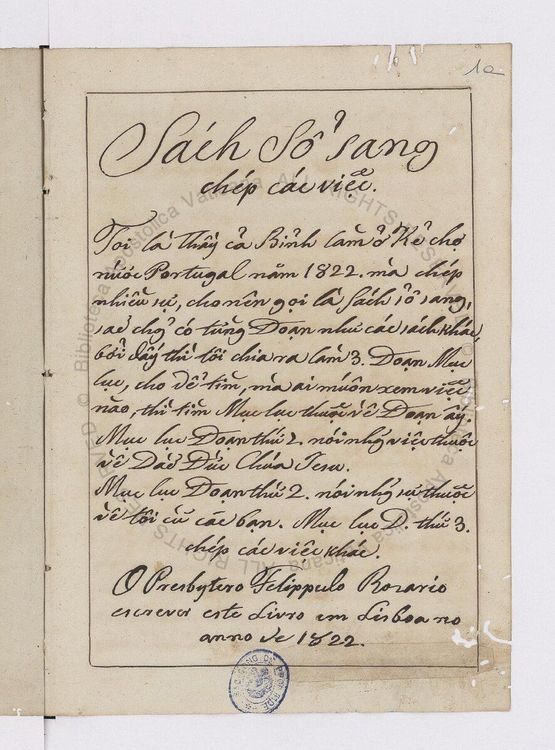 1a
Sách Sổ sang
chép các việc.
Tôi là thầy cả Bỉnh làm ở Kẻ chợ
nước Portugal năm 1822. mà chép
nhiều sự, cho nên gọi là Sách sổ sang,
sác chẳ có từng Đoạn như các sách khác,
bởi đấy thì tôi chia ra làm 3. Đoạn Mục
lục, cho dễ tìm, mà ai muốn xem việc
nào, thì tìm Mục lục thuộc về Đoạn ấy.
Mục lục Đoạn thứ 2. nói nhữ việc thuộc
về Dào Đức Chúa Jesu.
Mục lục Đoạn thứ 2. nói nhữ sự thuộc
về tôi cũ các bạn. Mục lục D. thứ 3.
chép các việc khác.
O Presbytero Felippulo Rozario
escrever este Livro em Lisboa no
anno de 1822.
© Biblioteca Apostolica Vaticana ALL RIGHTS RESERVED